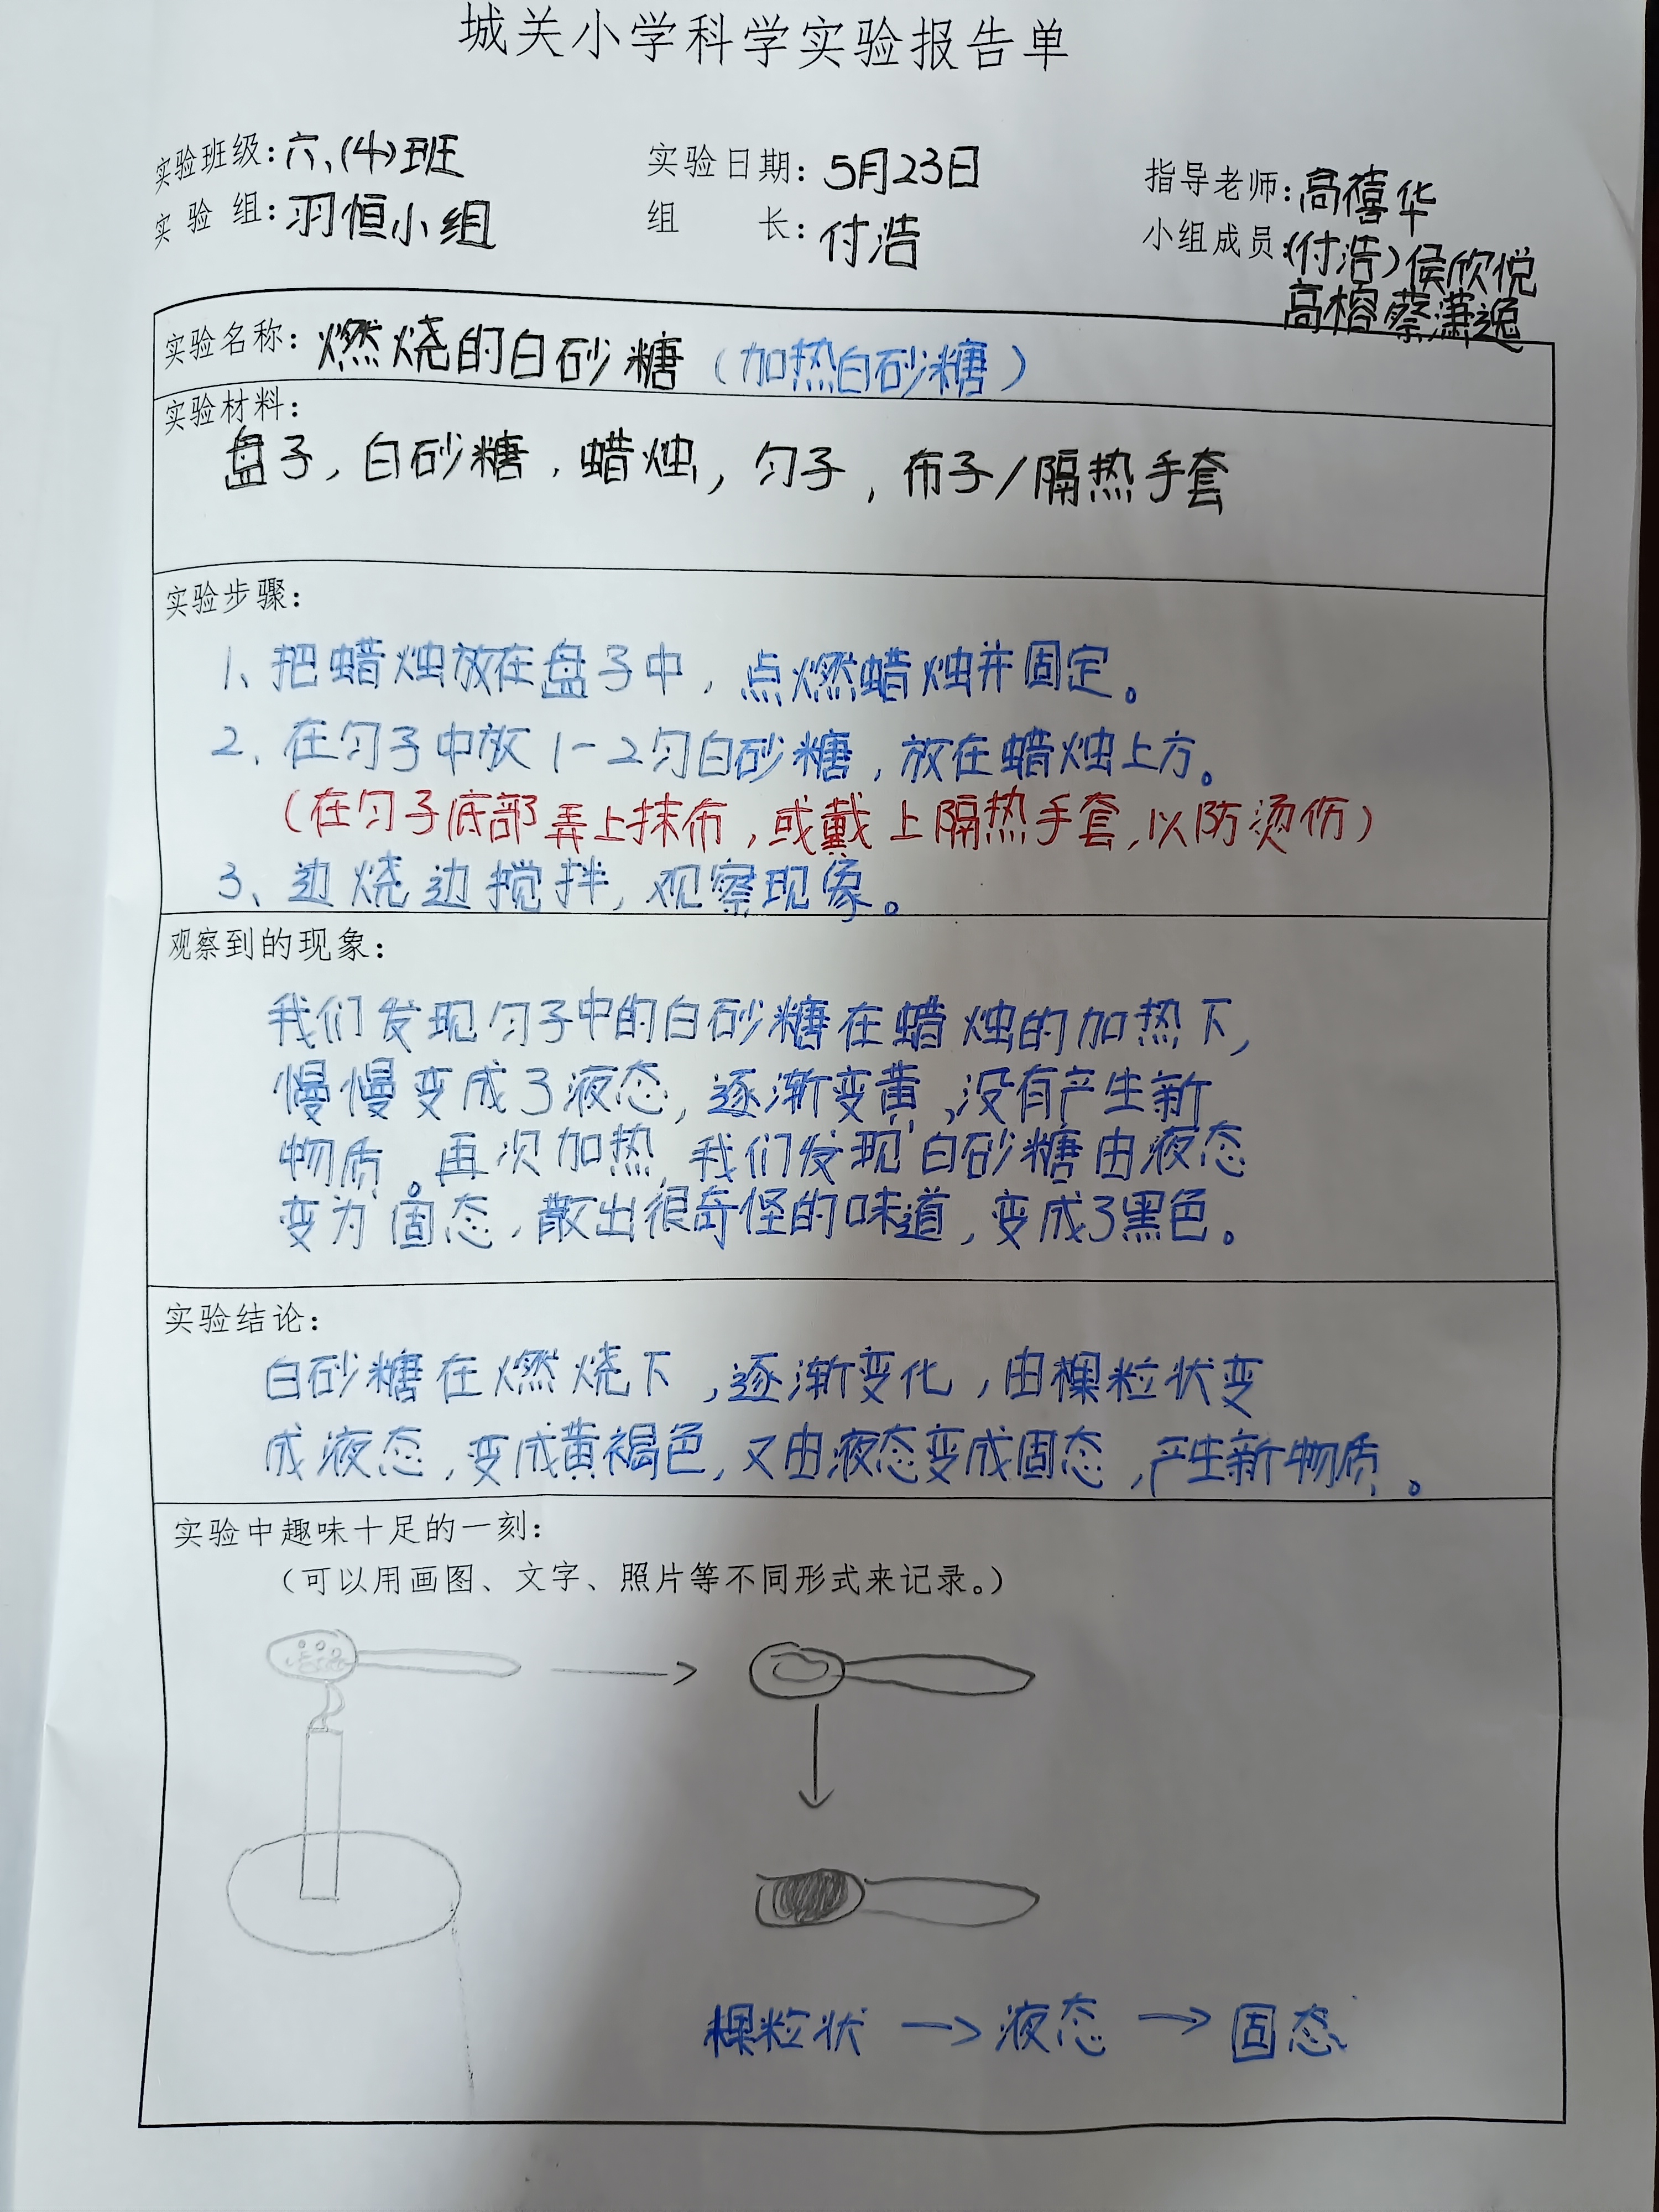 城关小学科学实验报告单
实验班级:六、(4)班 实验日期:5月23日 指导老师:高禧华
实验组:羽恒小组 组长:付浩 小组成员:(付浩)侯欣悦
高榕 蔡潇逸
实验名称:燃烧的白砂糖(加热白砂糖)
实验材料:
盘子,白砂糖,蜡烛,匀子,布子/隔热手套
实验步骤:
1、把蜡烛放在盘子中,点燃蜡烛并固定。
2、在匀子中放1-2匀白砂糖,放在蜡烛上方。
(在匀子底部弄上抹布,或戴上隔热手套,以防烫伤)
3、边烧边搅拌,观察现象。
观察到的现象:
我们发现匀子中的白砂糖在蜡烛的加热下,
慢慢变成了液态,逐渐变黄,没有产生新
物质。再次加热,我们发现白砂糖由液态
变为固态,散出很奇怪的味道,变成了黑色。
实验结论:
白砂糖在燃烧下,逐渐变化,由棵粒状变
成液态,变成黄褐色,又由液态变成固态,产生新物质。
实验中趣味十足的一刻:
(可以用画图、文字、照片等不同形式来记录。)
棵粒状→液态→固态